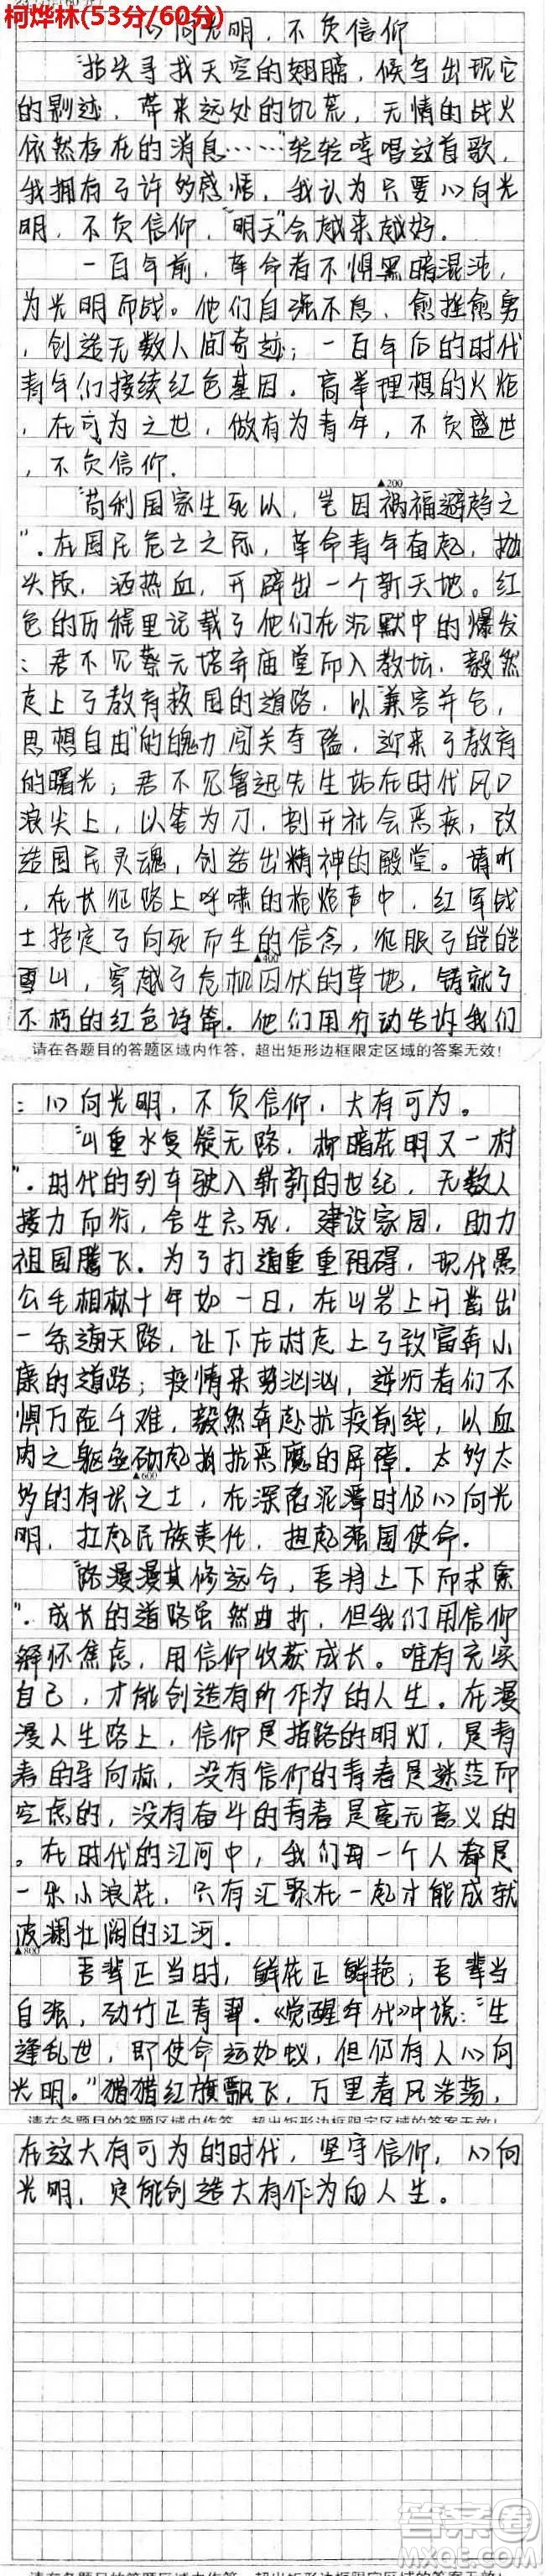 柯烨林(53分/60分)
心向光明，不负信仰
“指尖寻找天空的翅膀，候鸟出现它
的剔迹，带来远处的饥荒，无情的战火
依然存在的消息……”轻轻哼唱这首歌，
我拥有了许多感悟，我认为只要心向光
明，不负信仰，“明天”会越来越好。
一百年前，革命者不惧黑暗混沌，
为光明而战。他们自强不息，愈挫愈勇
，创造无数人间奇迹；一百年后的时代
青年们接续红色基因，高举理想的火炬
，在可为之世，做有为青年，不负盛世
，不负信仰。
▲200
“苟利国家生死以，岂因祸福避趋之
”。在国民危亡之际，革命青年奋起，抛
头颅，洒热血，开辟出一个新天地。红
色的历程里记载了他们在沉默中的爆发
：君不见蔡元培弃庙堂而入教坛，毅然
走上了教育救国的道路，以“兼容并包，
思想自由”的魄力闯关夺隘，迎来了教育
的曙光；君不见鲁迅先生站在时代风口
浪尖上，以笔为刀，剖开社会恶疾，改
造国民灵魂，创造出精神的殿堂。请听
，在长征路上呼啸的枪炮声中，红军战
士抱定了向死而生的信念，征服了皑皑
▲400
雪山，穿越了危机四伏的草地，铸就了
不朽的红色诗篇。他们用行动告诉我们
请在各题目的答题区域内作答，超出矩形边框限定区域的答案无效！
：心向光明，不负信仰，大有可为。
“山重水复疑无路，柳暗花明又一村
”。时代的列车驶入崭新的世纪，无数人
接力而行，舍生忘死，建设家园，助力
祖国腾飞。为了打通重重阻碍，现代愚
公毛相林十年如一日，在山岩上开凿出
一条通天路，让下庄村走上了致富奔小
康的道路；疫情来势汹汹，逆行者们不
惧万险千难，毅然奔赴抗疫前线，以血
肉之躯垒砌起抵抗恶魔的屏障。太多太
▲600
多的有识之士，在深陷泥潭时仍心向光
明，扛起民族责任，担起强国使命。
“路漫漫其修远兮，吾将上下而求索
”。成长的道路虽然曲折，但我们用信仰
解怀焦虑，用信仰收获成长。唯有充实
自己，才能创造有所作为的人生。在漫
漫人生路上，信仰是指路的明灯，是青
春的导向标，没有信仰的青春是迷茫而
空虚的，没有奋斗的青春是毫无意义的
。在时代的江河中，我们每一个人都是
一朵小浪花，只有汇聚在一起才能成就
波澜壮阔的江河。
▲800
吾辈正当时，鲜花正鲜艳；吾辈当
自强，劲竹正青翠。《觉醒年代》中说：“生
逢乱世，即使命运如蚁，但仍有人心向
光明。”猎猎红旗飘飞，万里春风浩荡，
请在各题目的答题区域内作答，超出矩形边框限定区域的答案无效！
在这大有可为的时代，坚守信仰，心向
光明，定能创造大有作为的人生。
答案圈
MXQE.COM
请在各题目的答题区域内作答，超出矩形边框限定区域的答案无效！